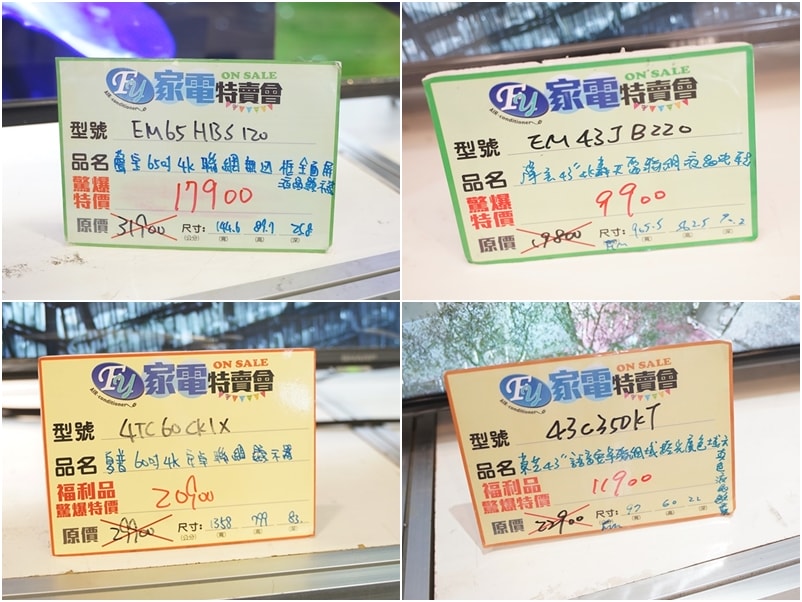 FU 家電特賣會 ON SALE
Air conditioner
型號 EM65HBS120
品名 65吋 4K 聯網無邊框全面屏
液晶顯示器
驚爆特價 17900
原價 31900 尺寸:(公分) 144.6(寬) 89.7(高) 25.8(深)
FU 家電特賣會 ON SALE
Air conditioner
型號 EM43JB220
品名 43"
驚爆特價 9900
原價 19800 尺寸: 965.5 562.5
FU 家電特賣會 ON SALE
Air conditioner
型號 4TC60CK1X
品名 60吋 4K 安卓聯網顯示器
福利品驚爆特價 20900
原價 29900 尺寸:(公分) 135.8(寬) 79.9(高)
FU 家電特賣會 ON SALE
Air conditioner
型號 43C350KT
品名 東芝43"
福利品驚爆特價 11900
原價 22900 尺寸: 97 60 22